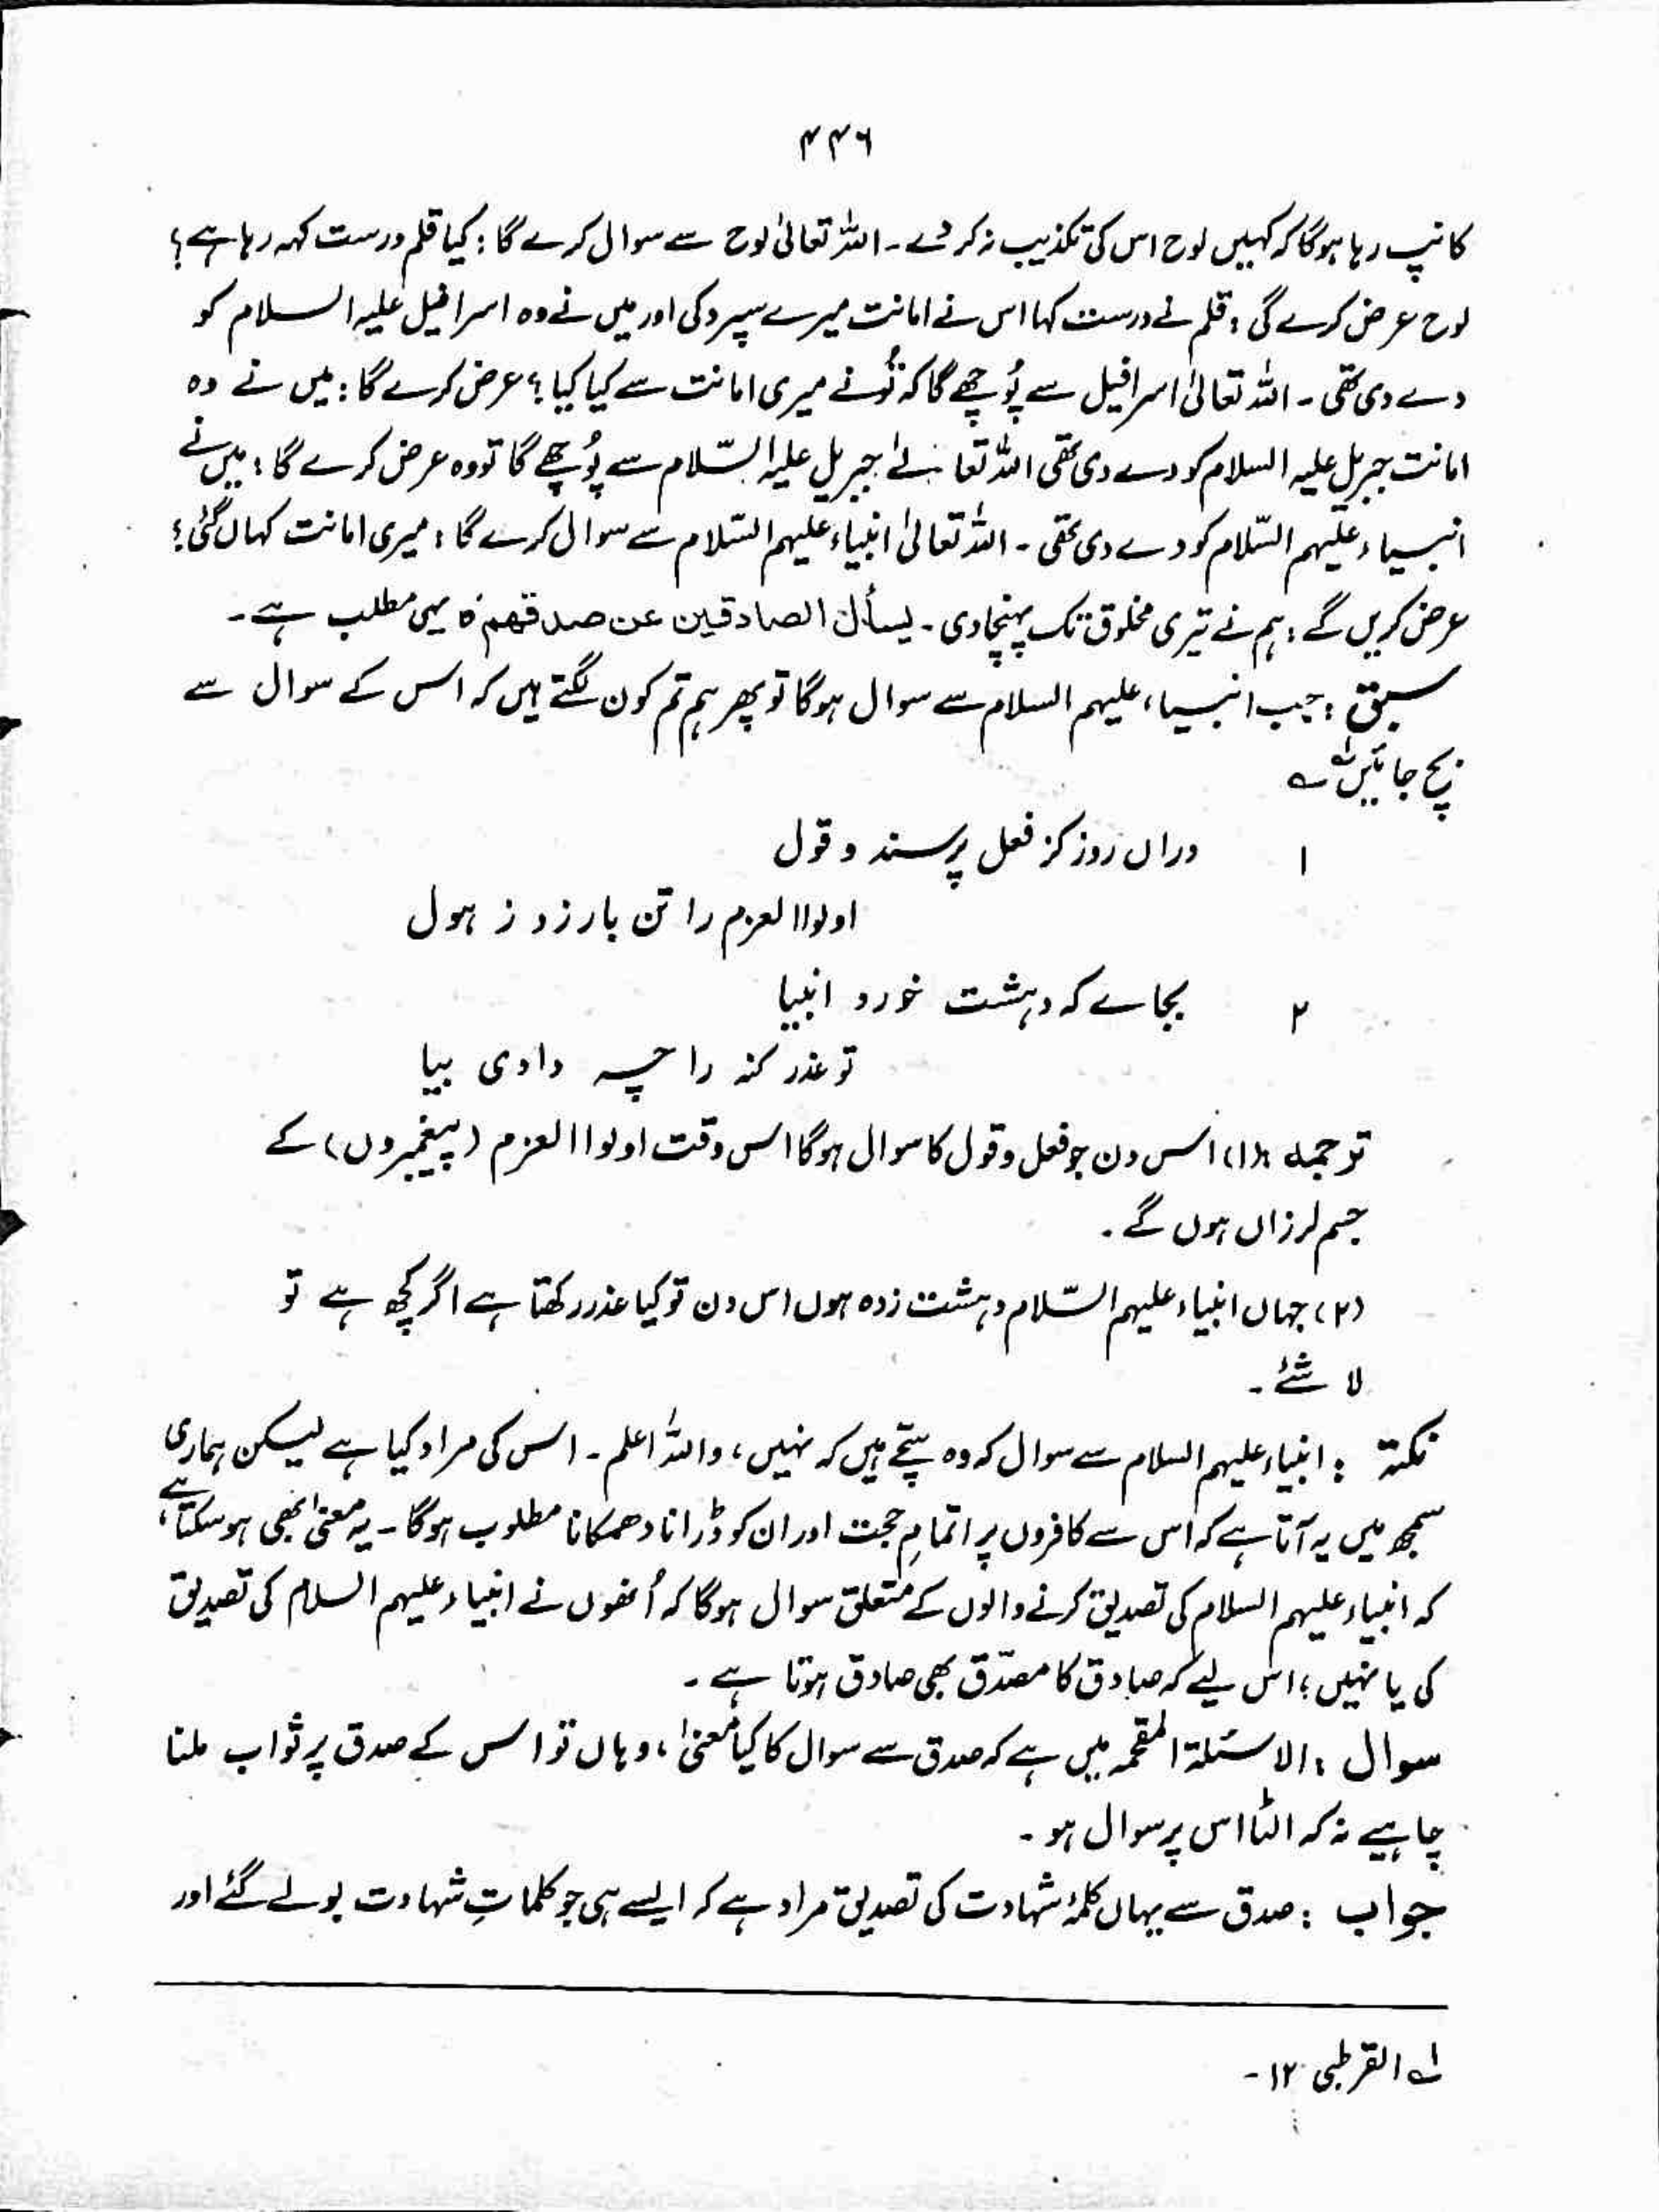 ۴۴۶
کانپ رہا ہوگا کہ کہیں لوح اس کی تکذیب نہ کر دے۔ اللہ تعالیٰ لوح سے سوال کرے گا: کیا قلم درست کہہ رہا ہے؟
لوح عرض کرے گی: قلم نے درست کہا اس نے امانت میرے سپرد کی اور میں نے وہ اسرافیل علیہ السلام کو
دے دی تھی۔ اللہ تعالیٰ اسرافیل سے پُوچھے گا کہ تُونے میری امانت سے کیا کیا؟ عرض کرے گا: میں نے وہ
امانت جبریل علیہ السلام کو دے دی تھی اللہ تعالیٰ جبریل علیہ السّلام سے پُوچھے گا تو وہ عرض کرے گا: میں نے
انبیاء علیہم السّلام کو دے دی تھی۔ اللہ تعالیٰ انبیاء علیہم السّلام سے سوال کرے گا: میری امانت کہاں گئی؟
عرض کریں گے: ہم نے تیری مخلوق تک پہنچا دی۔ لیسأل الصادقین عن صدقھم کا یہی مطلب ہے۔
سبق: جب انبیاء علیہم السلام سے سوال ہوگا تو پھر ہم تم کون لگتے ہیں کہ اس کے سوال سے
بچ جائیں؂۱
۱ دراں روز کز فعل پرسند و قول
اولوا العزم را تن بارزد ز ہول
۲ بجاے کہ دہشت خورد انبیا
تو عذر گنہ را چہ داری بیا
ترجمہ: (۱) اس دن جو فعل و قول کا سوال ہوگا اس وقت اولوا العزم (پیغمبروں) کے
جسم لرزاں ہوں گے۔
(۲) جہاں انبیاء علیہم السّلام دہشت زدہ ہوں اس دن تو کیا عذر رکھتا ہے اگر کچھ ہے تو
لا شئے۔
نکتہ: انبیاء علیہم السلام سے سوال کہ وہ سچّے ہیں کہ نہیں، واللہ اعلم۔ اس کی مراد کیا ہے لیکن ہماری
سمجھ میں یہ آتا ہے کہ اس سے کافروں پر اتمامِ حجت اور ان کو ڈرانا دھمکانا مطلوب ہوگا۔ یہ معنیٰ بھی ہوسکتا ہے،
کہ انبیاء علیہم السلام کی تصدیق کرنے والوں کے متعلق سوال ہوگا کہ اُنھوں نے انبیاء علیہم السلام کی تصدیق
کی یا نہیں؛ اس لیے کہ صادق کا مصدّق بھی صادق ہوتا ہے۔
سوال: الاسئلۃ المقحمہ میں ہے کہ صدق سے سوال کا کیا معنیٰ، وہاں تو اس کے صدق پر ثواب ملنا
چاہیے نہ کہ الٹا اس پر سوال ہو۔
جواب: صدق سے یہاں کلمۂ شہادت کی تصدیق مراد ہے کہ ایسے ہی جو کلماتِ شہادت بولے گئے اور
؂۱ القرطبی ۱۲۔